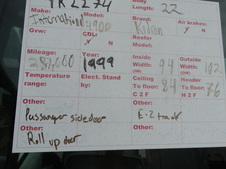 TK2274
Length: 22
Make: International
Model: 4900
Brand: Kidron
Air brakes:
Y N
Gvw:
CDL:
Y N
Reefer
Model:
Mileage:
Year:
1999
Inside
Width:
94
Outside
Width:
102
Temperature
range:
Elect. Stand
by:
Ceiling
To floor: 84
C 2 F
Header
To floor:
H 2 F 86
Other:
Passanger sidedoor
Other:
E-Z track
Other:
Roll up door
Other: